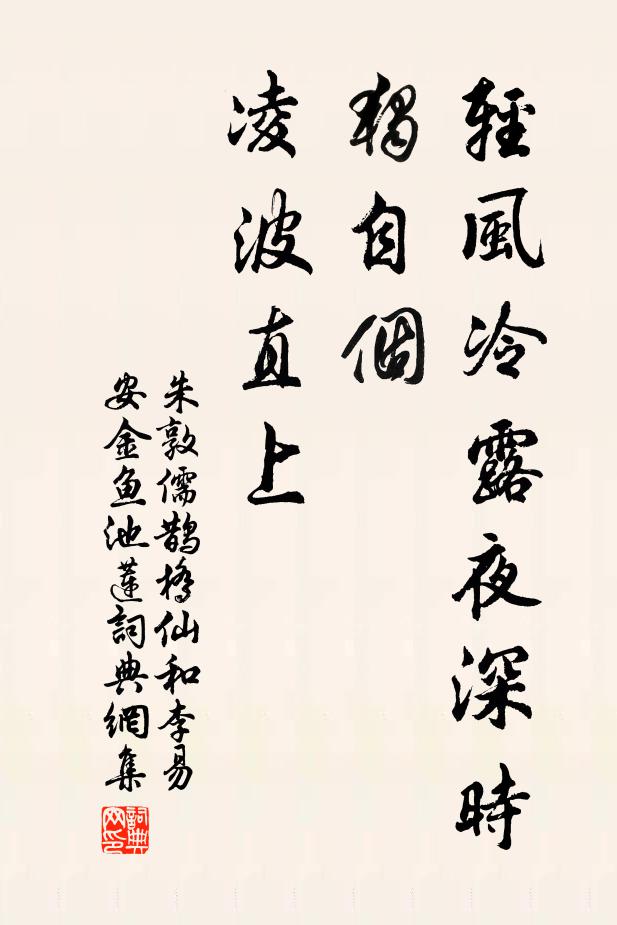 輕風冷露夜深時
獨自個
凌波直上
朱敦儒鵲橋仙和李易
安金鱼池蓮詞典網集
詞典網印